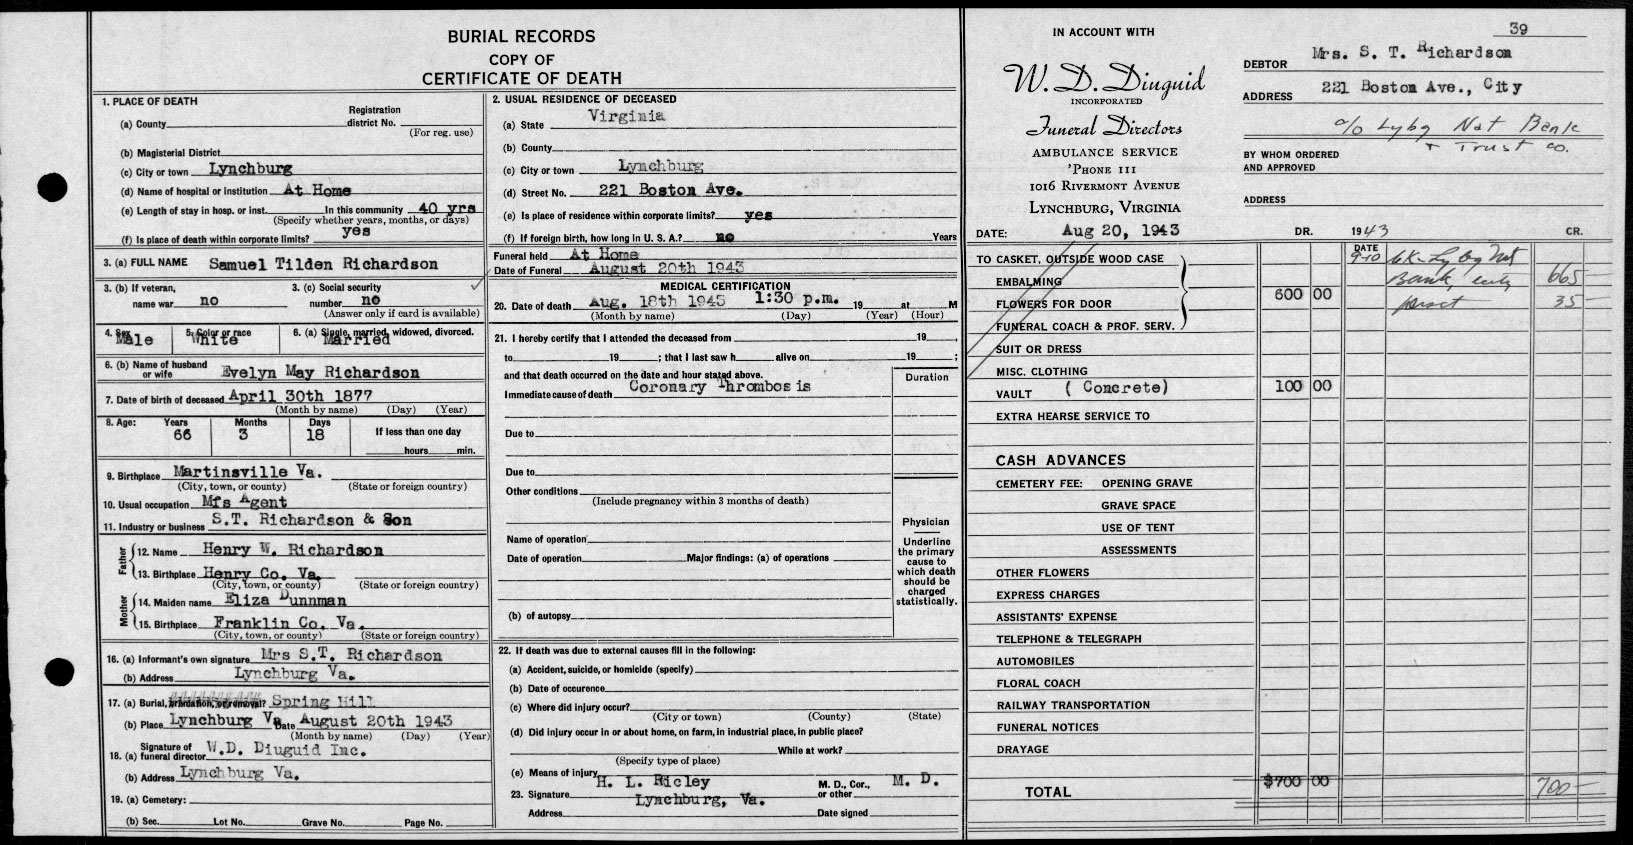 BURIAL RECORDS
COPY OF
CERTIFICATE OF DEATH
1. PLACE OF DEATH
(a) County Registration district No.
(For reg. use)
(b) Magisterial District
(c) City or town Lynchburg
(d) Name of hospital or institution At Home
(e) Length of stay in hosp. or inst. In this community 40 yrs
(Specify whether years, months, or days)
(f) Is place of death within corporate limits? yes
3. (a) FULL NAME Samuel Tilden Richardson
3. (b) If veteran, name war no 3. (c) Social security number no
(Answer only if card is available)
4. Sex Male 5. Color or race White 6. (a) Single, married, widowed, divorced. Married
6. (b) Name of husband or wife Evelyn May Richardson
7. Date of birth of deceased April 30th 1877
(Month by name) (Day) (Year)
8. Age: Years 66 Months 3 Days 18 If less than one day
hours min.
9. Birthplace Martinsville Va.
(City, town, or county) (State or foreign country)
10. Usual occupation Mfs Agent
11. Industry or business S.T. Richardson & Son
Father
12. Name Henry W. Richardson
13. Birthplace Henry Co. Va.
(City, town, or county) (State or foreign country)
Mother
14. Maiden name Eliza Dunnman
15. Birthplace Franklin Co. Va.
(City, town, or county) (State or foreign country)
16. (a) Informant's own signature Mrs S.T. Richardson
(b) Address Lynchburg Va.
17. (a) Burial, cremation, or removal? Spring Hill
(b) Place Lynchburg Va Date August 20th 1943
(Month by name) (Day) (Year)
18. (a) Signature of funeral director W.D. Diuguid Inc.
(b) Address Lynchburg Va.
19. (a) Cemetery:
(b) Sec. Lot No. Grave No. Page No.
2. USUAL RESIDENCE OF DECEASED
(a) State Virginia
(b) County
(c) City or town Lynchburg
(d) Street No. 221 Boston Ave.
(e) Is place of residence within corporate limits? yes
(f) If foreign birth, how long in U. S. A.? no Years
Funeral held At Home
Date of Funeral August 20th 1943
MEDICAL CERTIFICATION
20. Date of death Aug. 18th 1943 1:30 p.m. 19 at M
(Month by name) (Day) (Year) (Hour)
21. I hereby certify that I attended the deceased from 19 ,
to 19 ; that I last saw h alive on 19 ;
and that death occurred on the date and hour stated above.
Duration
Immediate cause of death Coronary Thrombosis
Due to
Due to
Other conditions
(Include pregnancy within 3 months of death)
Name of operation
Date of operation Major findings: (a) of operations
(b) of autopsy
Physician
Underline the primary cause to which death should be charged statistically.
22. If death was due to external causes fill in the following:
(a) Accident, suicide, or homicide (specify)
(b) Date of occurence
(c) Where did injury occur?
(City or town) (County) (State)
(d) Did injury occur in or about home, on farm, in industrial place, in public place?
While at work?
(Specify type of place)
(e) Means of injury
23. Signature H. L. Ricley M. D., Cor., or other M. D.
Address Lynchburg, Va. Date signed
IN ACCOUNT WITH
W. D. Diuguid
INCORPORATED
Funeral Directors
AMBULANCE SERVICE
'PHONE 111
1016 RIVERMONT AVENUE
LYNCHBURG, VIRGINIA
DATE: Aug 20, 1943
39
DEBTOR Mrs. S. T. Richardson
ADDRESS 221 Boston Ave., City
c/o Lybg Nat Bank
+ Trust Co.
BY WHOM ORDERED AND APPROVED
ADDRESS
DR. 1943 CR.
TO CASKET, OUTSIDE WOOD CASE
EMBALMING
FLOWERS FOR DOOR 600 00
FUNERAL COACH & PROF. SERV.
SUIT OR DRESS
MISC. CLOTHING
VAULT (Concrete) 100 00
EXTRA HEARSE SERVICE TO
DATE
9-10 Nat
Bank, city 665 -
35 -
CASH ADVANCES
CEMETERY FEE: OPENING GRAVE
GRAVE SPACE
USE OF TENT
ASSESSMENTS
OTHER FLOWERS
EXPRESS CHARGES
ASSISTANTS' EXPENSE
TELEPHONE & TELEGRAPH
AUTOMOBILES
FLORAL COACH
RAILWAY TRANSPORTATION
FUNERAL NOTICES
DRAYAGE
TOTAL $700 00 700 -